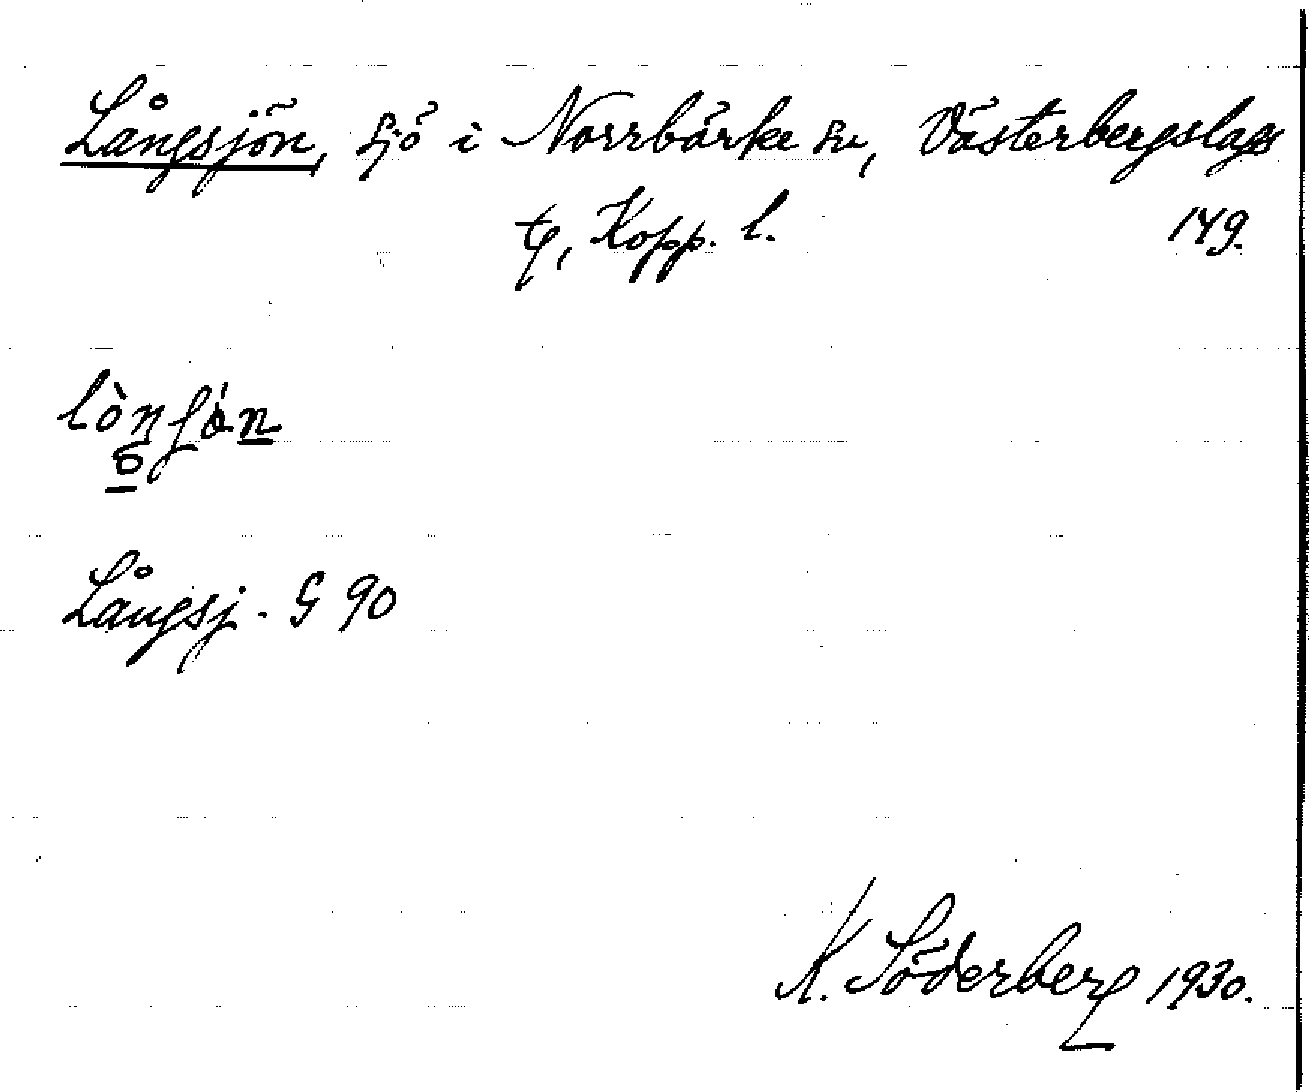 Långsjön, sjö i Norrbärke sn, Västerbergslags
tg, Kopp. l. 149.
Långsj. G 90
K. Söderberg 1930.